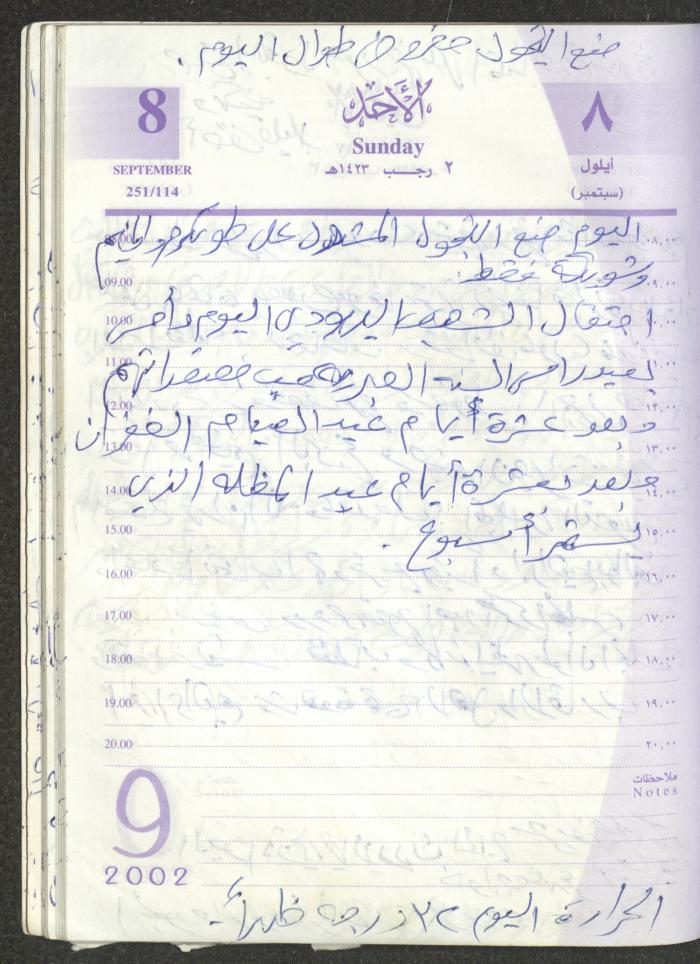 منع التجول مفروض طوال اليوم .
8
الأحد
٨
Sunday
SEPTEMBER
٢ رجب ١٤٢٣هـ
أيلول
251/114
(سبتمبر)
اليوم منع التجول المشدد على طولكرم والمخيم
08.00
٠٨,٠٠
وشويكة فقط .
09.00
٠٩,٠٠
احتفال الشعب اليهودي اليوم وأمس
10.00
١٠,٠٠
بعيد راس السنة العبرية حسب معتقداتهم
11.00
١١,٠٠
12.00
١٢,٠٠
وبعد عشرة أيام عيد الصيام الغفران
13.00
١٣,٠٠
وبعد عشرة أيام عيد المظله الذي
14.00
١٤,٠٠
يستمر أسبوع .
15.00
١٥,٠٠
16.00
١٦,٠٠
17.00
١٧,٠٠
18.00
١٨,٠٠
19.00
١٩,٠٠
20.00
٢٠,٠٠
ملاحظات
Notes
9
2002
الحرارة اليوم ٣٢ درجه ظهراً .